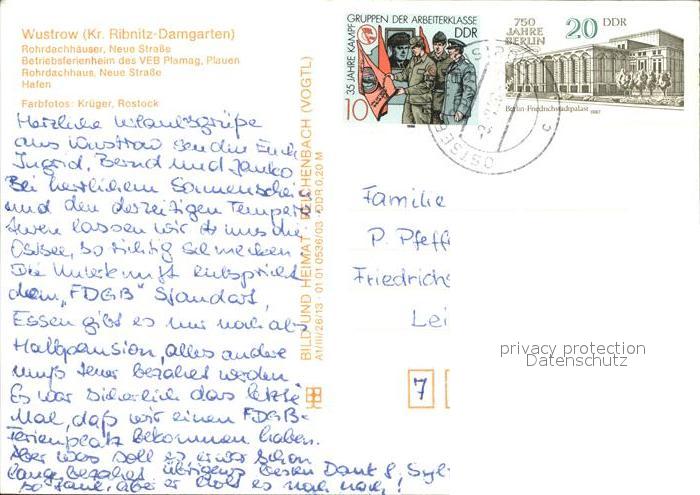 Wustrow (Kr. Ribnitz-Damgarten)
Rohrdachhäuser, Neue Straße
Betriebsferienheim des VEB Plamag, Plauen
Rohrdachhaus, Neue Straße
Hafen
Farbfotos: Krüger, Rostock
Herzliche Urlaubsgrüße
aus Wustrow senden Euch
Ingrid, Bernd und Janko
Bei herrlichem Sonnenschein
und den derzeitigen Tempera-
turen lassen wir es uns die
Ostsee, so richtig schmecken.
Die Unterkunft entspricht
dem „FDGB" Standart,
Essen gibt es nur noch als
Halbpension, alles andere
muß teuer bezahlt werden.
Es war sicherlich das letzte
Mal, daß wir einen FDGB-
Ferienplatz bekommen haben.
Aber was soll es
übrigens besten Dank f.
BILD UND HEIMAT · REICHENBACH (VOGTL)
A1/III/26/13 · 01 01 0536/03 · DDR 0,20 M
35 JAHRE KAMPFGRUPPEN DER ARBEITERKLASSE
DDR
10
1988
750
JAHRE
BERLIN
20 DDR
Berlin-Friedrichstadtpalast 1987
OSTSEE
c
Familie
P. Pfeff
Friedrichs
Lei
7
privacy protection
Datenschutz